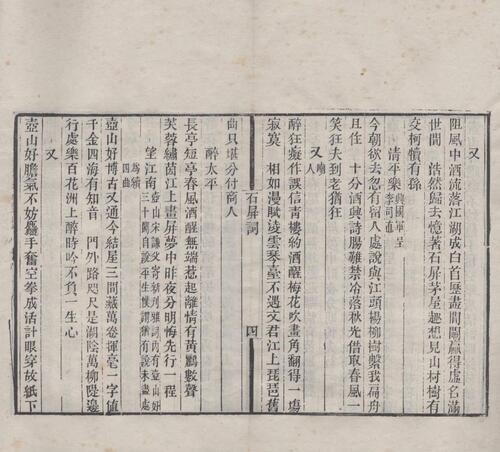 阻風中酒流落江湖成白首歷盡間關贏得虛名滿
世間　浩然歸去憶著石屏茅屋趣想見山村樹有
交柯犢有孫
清平樂 興國軍呈李司直
今朝欲去忽有留人處說與江頭楊柳樹繫我扁舟
且住　十分酒興詩腸難禁冷落秋光借取春風一
笑狂夫到老猶狂
又 嘲人
醉狂癡作誤信青樓約酒醒梅花吹畫角翻得一場
寂寞　相如漫賦淩雲琴臺不遇文君江上琵琶舊
石屏詞　四
曲只堪分付商人
醉太平
長亭短亭春風酒醒無端惹起離情有黃鸝數聲
芙蓉繡茵江上畫屏夢中昨夜分明悔先行一程
望江南 壺山宋謙父寄新刊雅詞內有壺山好三十闋自說平生僕謂猶有說未盡處為續四曲
壺山好博古又通今結屋三間藏萬卷揮毫一字值
千金四海有知音　門外路咫尺是湖陰萬柳隄邊
行處樂百花洲上醉時吟不負一生心
又
壺山好膽氣不妨麤手奮空拳成活計眼穿故紙下